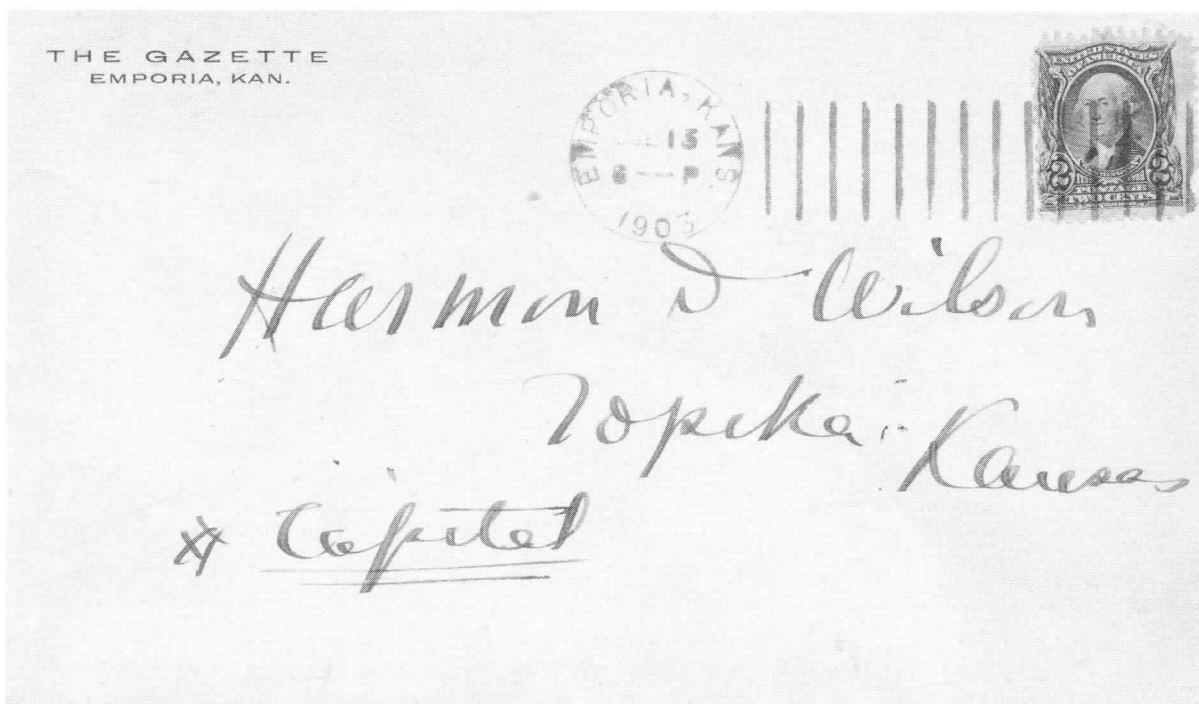 THE GAZETTE
EMPORIA, KAN.
EMPORIA, KANS
13
6 — P
1903
2 2
Harmon D Wilson
Topeka
Kansas
Capital